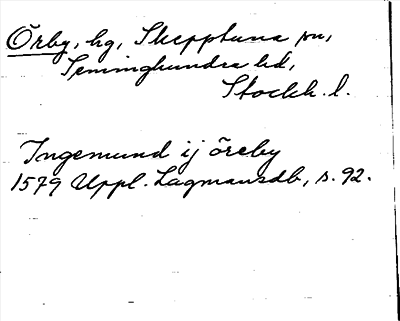 Örby, hg, Skepptuna sn,
Seminghundra hd,
Stockh. l.
Ingemund ij öreby
1579 Uppl. Lagmansdb, s. 92.